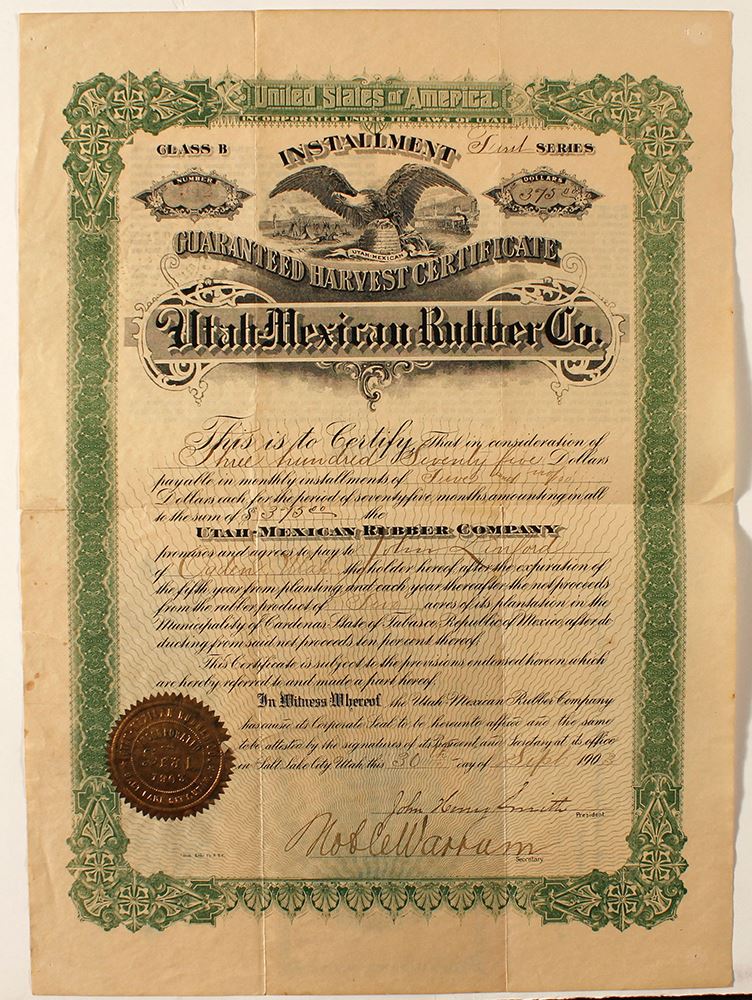 United States of America.
INCORPORATED UNDER THE LAWS OF UTAH
CLASS B
INSTALLMENT
First SERIES
NUMBER
DOLLARS
375.00
UTAH-MEXICAN
GUARANTEED HARVEST CERTIFICATE
Utah-Mexican Rubber Co.
This is to Certify, That in consideration of
Three hundred Seventy five Dollars
payable in monthly installments of Five and no/100
Dollars each, for the period of seventyfive months, amounting in all
to the sum of $ 375.00 the
UTAH-MEXICAN RUBBER COMPANY
promises and agrees to pay to John Linford
of Ogden Utah the holder hereof after the expiration of
the fifth year from planting, and each year thereafter, the net proceeds
from the rubber product of acres of its plantation in the
Municipality of Cardenas, State of Tabasco, Republic of Mexico, after de
ducting from said net proceeds ten per cent thereof.
This Certificate is subject to the provisions endorsed hereon, which
are hereby referred to and made a part hereof.
In Witness Whereof, the Utah-Mexican Rubber Company
has cause its Corporate Seal to be hereunto affixed and the same
to be attested by the signatures of its President and Secretary at its office
in Salt Lake City, Utah, this 30th day of Sept 1903
John Henry Smith
President.
Noble Warrum
Secretary.